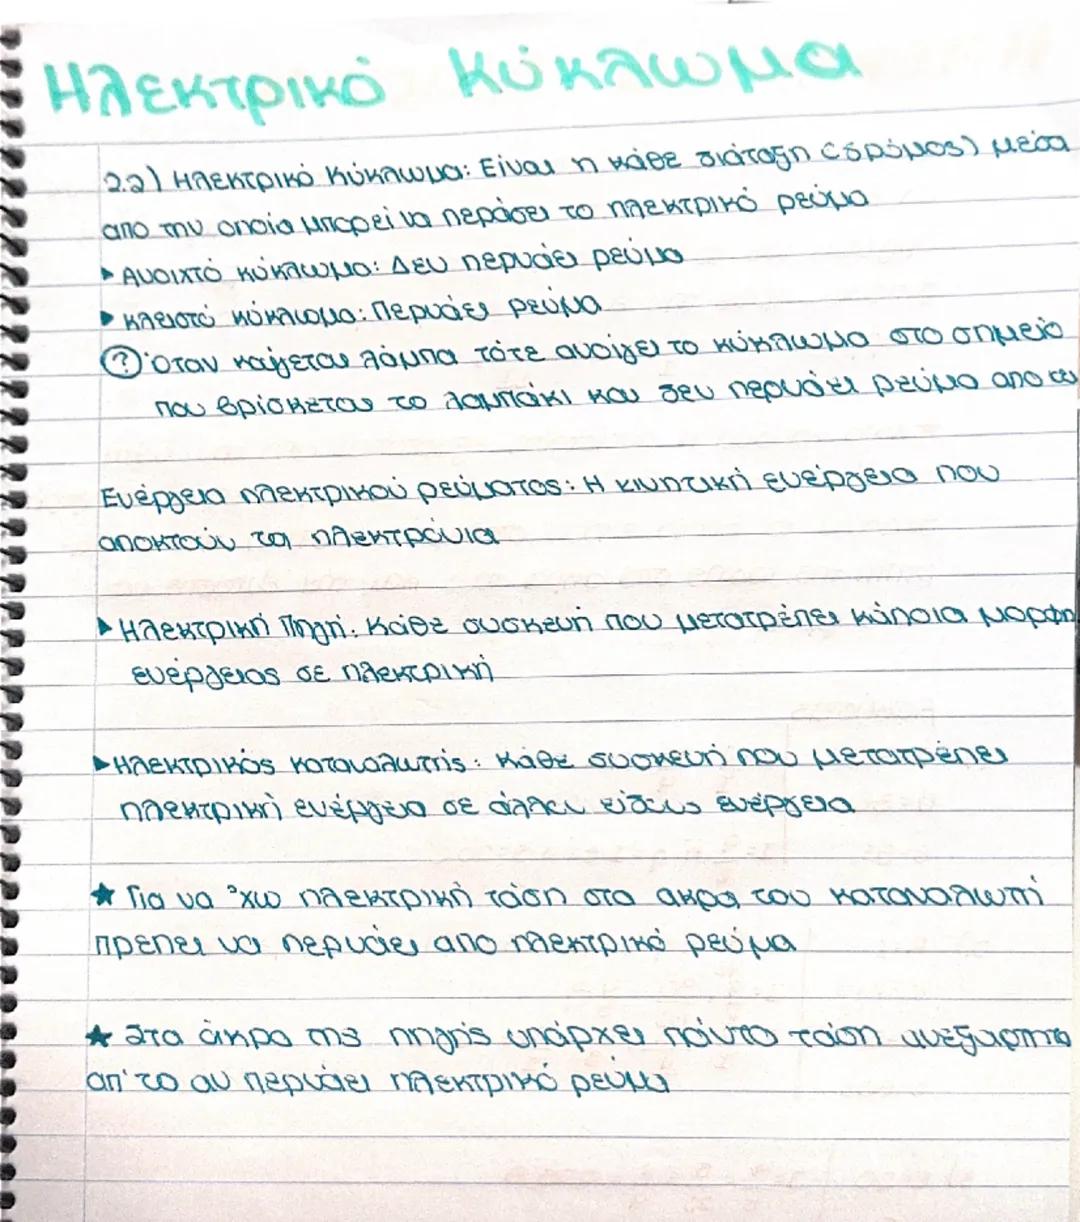 Ηλεκτρικό Κύκλωμα
2.2) Ηλεκτρικό Κύκλωμα: Είναι η κάθε διάταξη (δρόμος) μέσα
απο την οποία μπορεί να περάσει το ηλεκτρικό ρεύμα
▸ Ανοιχτό κύκλωμα: Δεν περνάει ρεύμα
▸ Κλειστό κύκλωμα: Περνάει ρεύμα
? Όταν καίγεται λάμπα τότε ανοίγει το κύκλωμα στο σημείο
που βρίσκεται το λαμπάκι και δεν περνάει ρεύμα απο
Ενέργεια ηλεκτρικού ρεύματος: Η κινητική ενέργεια που
αποκτούν τα ηλεκτρόνια
▸ Ηλεκτρική Πηγή: Κάθε συσκευή που μετατρέπει κάποια μορφη
ενέργειας σε ηλεκτρική
▸ Ηλεκτρικός καταναλωτής: Κάθε συσκευή που μετατρέπει
ηλεκτρική ενέργεια σε άλλου είδους ενέργεια
★ Για να 'χω ηλεκτρική τάση στα ακρα του καταναλωτή
πρεπει να περνάει απο ηλεκτρικό ρεύμα
★ Στα άκρα της πηγής υπάρχει πάντα τάση ανεξαρτητα
απ' το αν περνάει ηλεκτρικό ρεύμα